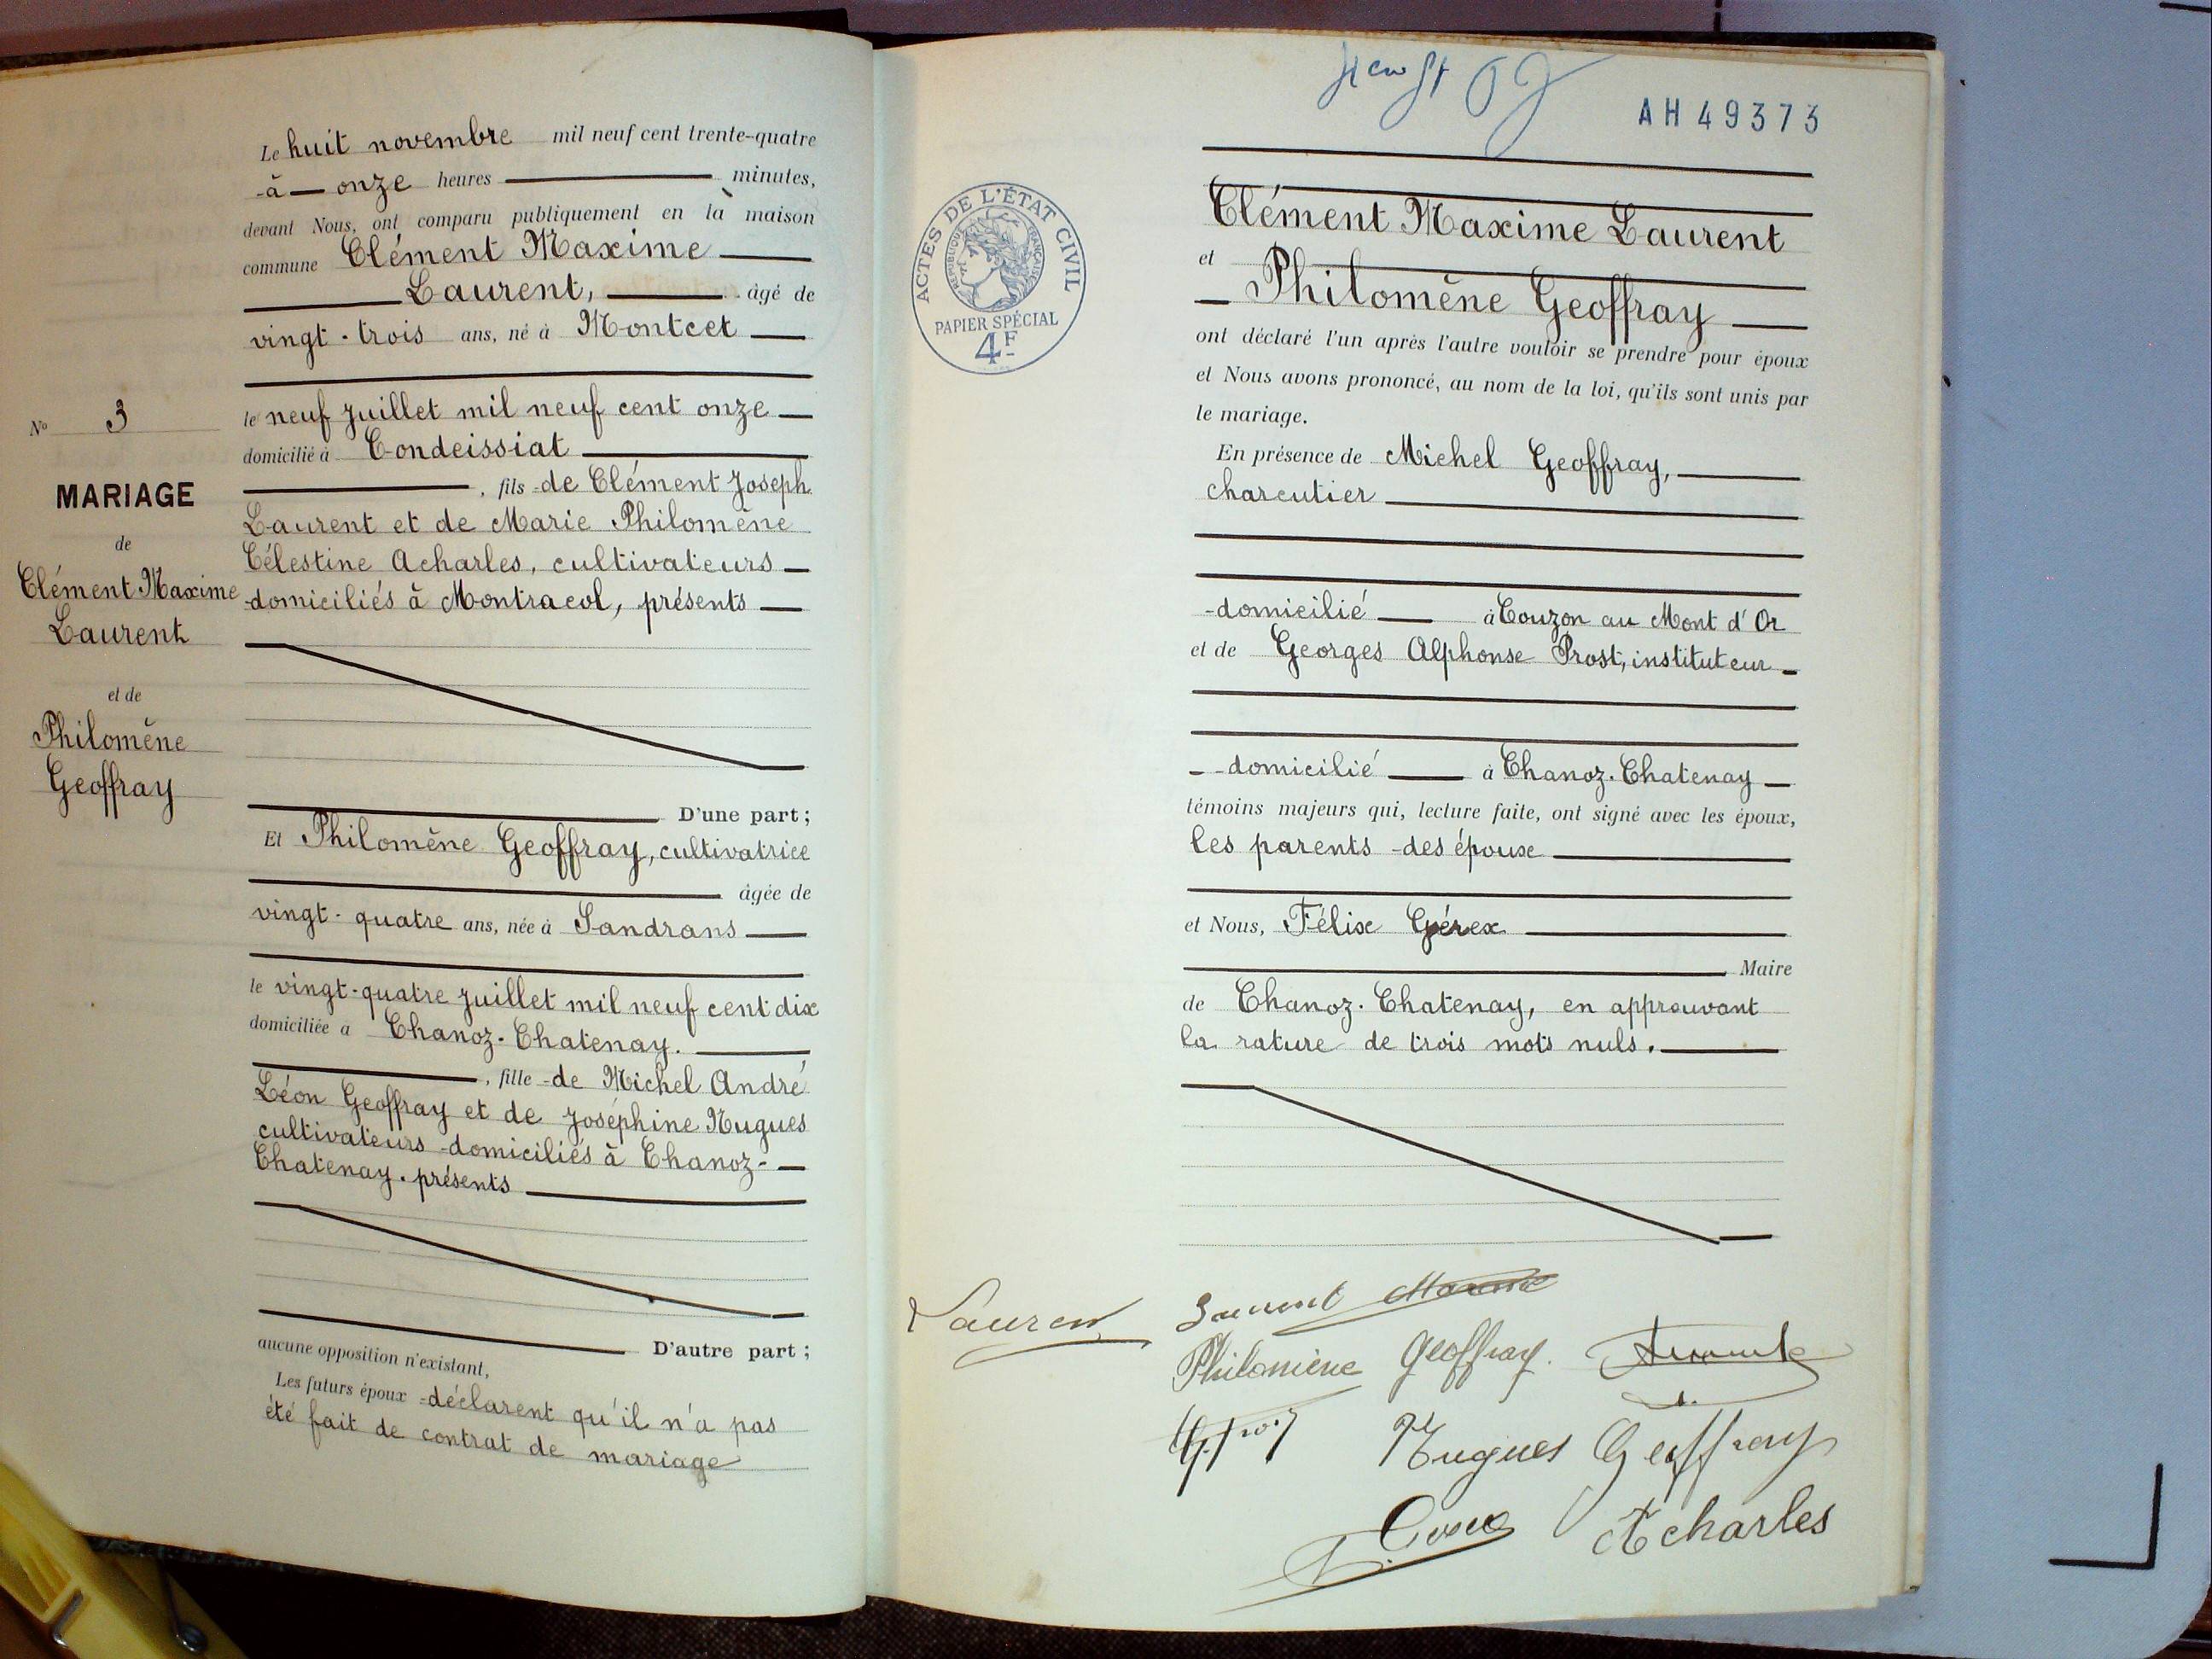 Le huit novembre mil neuf cent trente-quatre
à onze heures minutes,
devant Nous, ont comparu publiquement en la maison
commune Clément Maxime
Laurent, âgé de
vingt-trois ans, né à Montcet
le neuf juillet mil neuf cent onze
domicilié à Condeissiat
, fils de Clément Joseph
Laurent et de Marie Philomène
Célestine Acharles, cultivateurs
domiciliés à Montracol, présents
D'une part ;
Et Philomène Geoffray, cultivatrice
âgée de
vingt-quatre ans, née à Sandrans
le vingt-quatre juillet mil neuf cent dix
domiciliée à Chanoz-Chatenay.
, fille de Michel André
Léon Geoffray et de Joséphine Nugues
cultivateurs domiciliés à Chanoz-
Chatenay. présents
D'autre part ;
aucune opposition n'existant,
Les futurs époux déclarent qu'il n'a pas
été fait de contrat de mariage
N° 3
MARIAGE
de
Clément Maxime
Laurent
et de
Philomène
Geoffray
AH 49373
ACTES DE L'ÉTAT CIVIL
RÉPUBLIQUE FRANÇAISE
PAPIER SPÉCIAL
4F
Clément Maxime Laurent
et
Philomène Geoffray
ont déclaré l'un après l'autre vouloir se prendre pour époux
et Nous avons prononcé, au nom de la loi, qu'ils sont unis par
le mariage.
En présence de Michel Geoffray,
charcutier
domicilié à Couzon au Mont d'Or
et de Georges Alphonse Prost, instituteur
domicilié à Chanoz-Chatenay
témoins majeurs qui, lecture faite, ont signé avec les époux,
les parents des épouse
et Nous, Félix
Maire
de Chanoz-Chatenay, en approuvant
la rature de trois mots nuls.
Laurent
Laurent
Philomène Geoffray.
Nugues Geoffray
Acharles